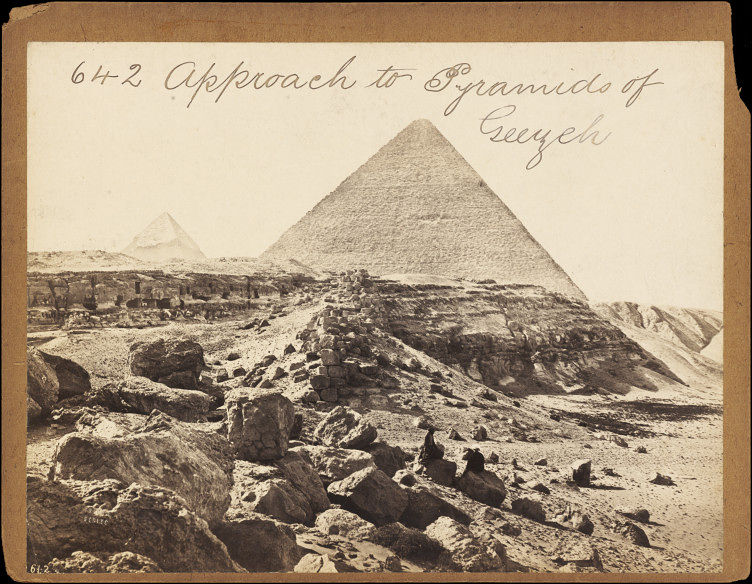 642 Approach to Pyramids of
Geezeh
642